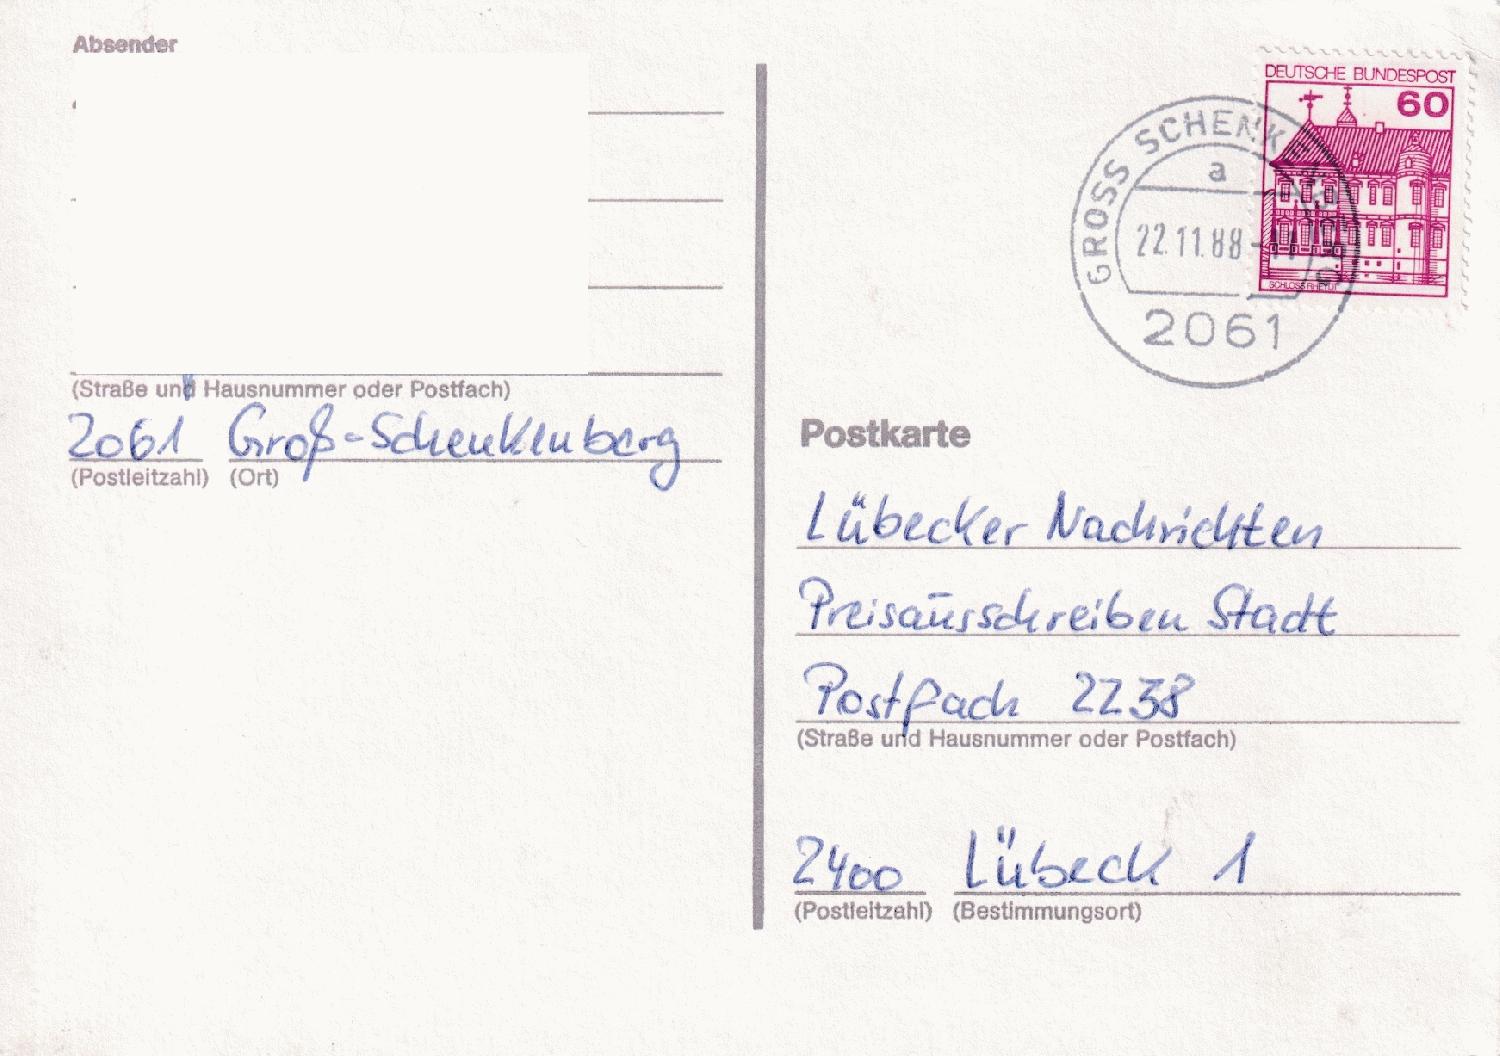 Absender
(Straße und Hausnummer oder Postfach)
2061 Groß-Schenkenberg
(Postleitzahl) (Ort)
DEUTSCHE BUNDESPOST
60
SCHLOSS RHEYDT
GROSS SCHENKENBERG
a
22.11.88-11
2061
Postkarte
Lübecker Nachrichten
Preisausschreiben Stadt
Postfach 2238
(Straße und Hausnummer oder Postfach)
2400 Lübeck 1
(Postleitzahl) (Bestimmungsort)